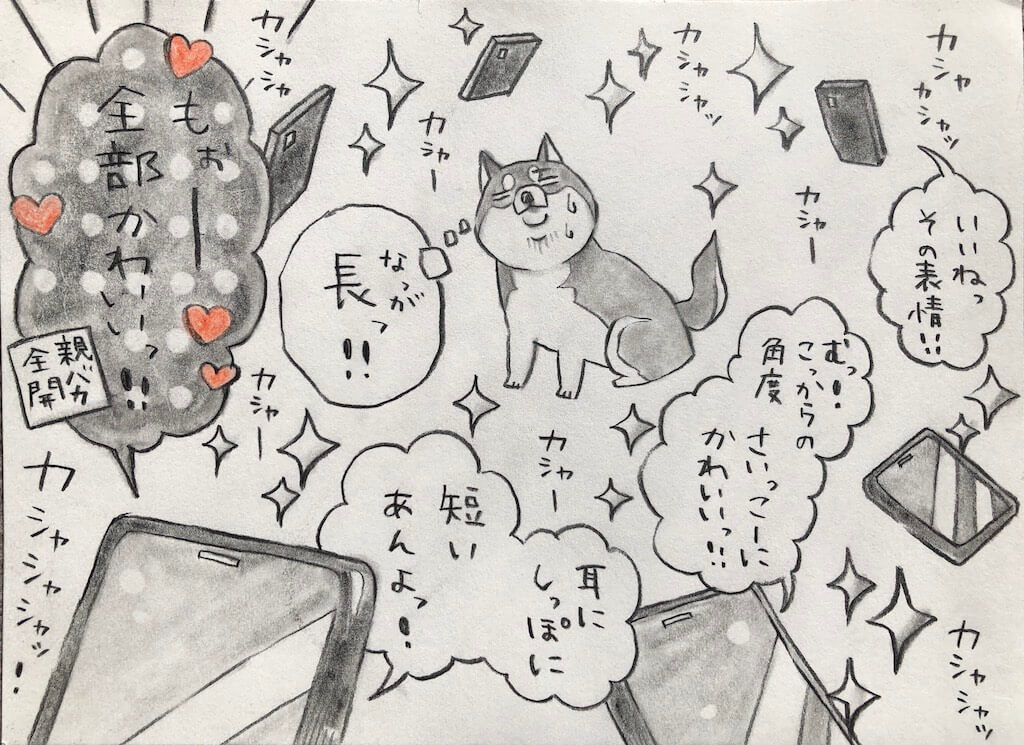 カシャ
カシャッ
いいねっ
その表情!!
カシャシャッ
カシャー
むっ!
こっからの
角度
さいっこーに
かわいいっ!!
カシャー
なっが
長っ!!
カシャシャ
もぉー
全部かわいいっ!!
親バカ
全開
カシャー
カシャー
耳に
しっぽに
短い
あんよっ!
カシャシャッ
カシャシャシャッ!